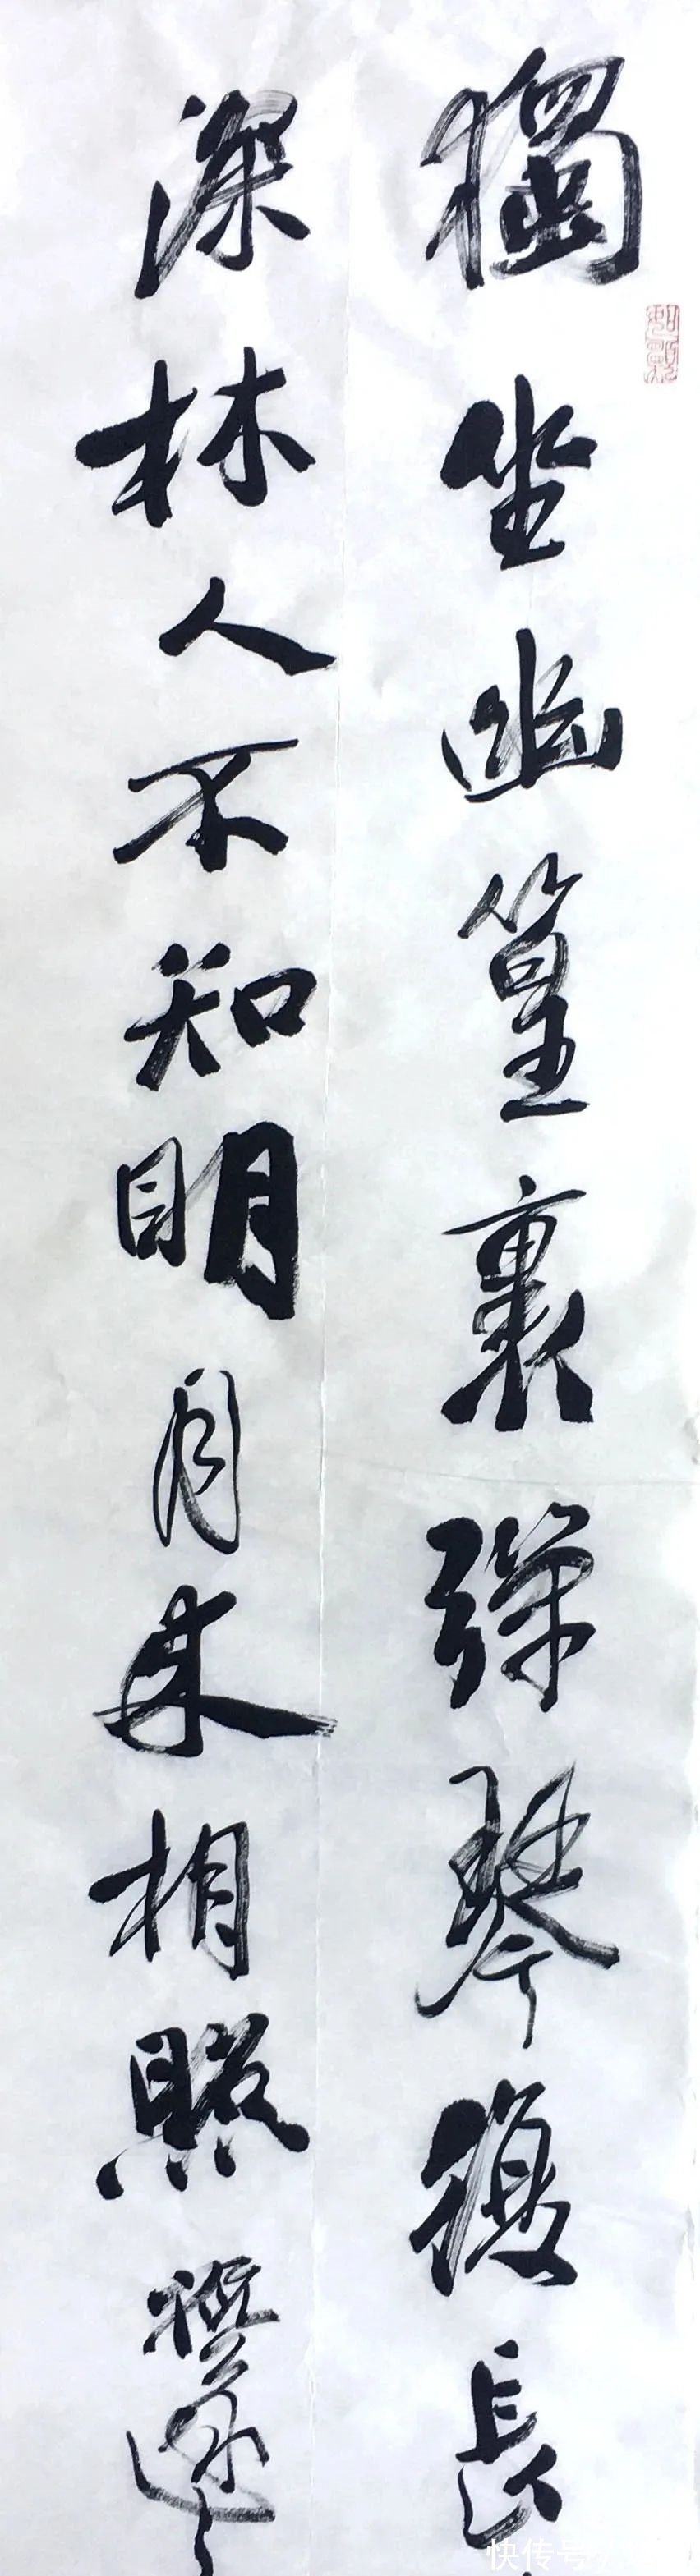 獨坐幽篁裏彈琴復長
深林人不知明月来相照
快传号